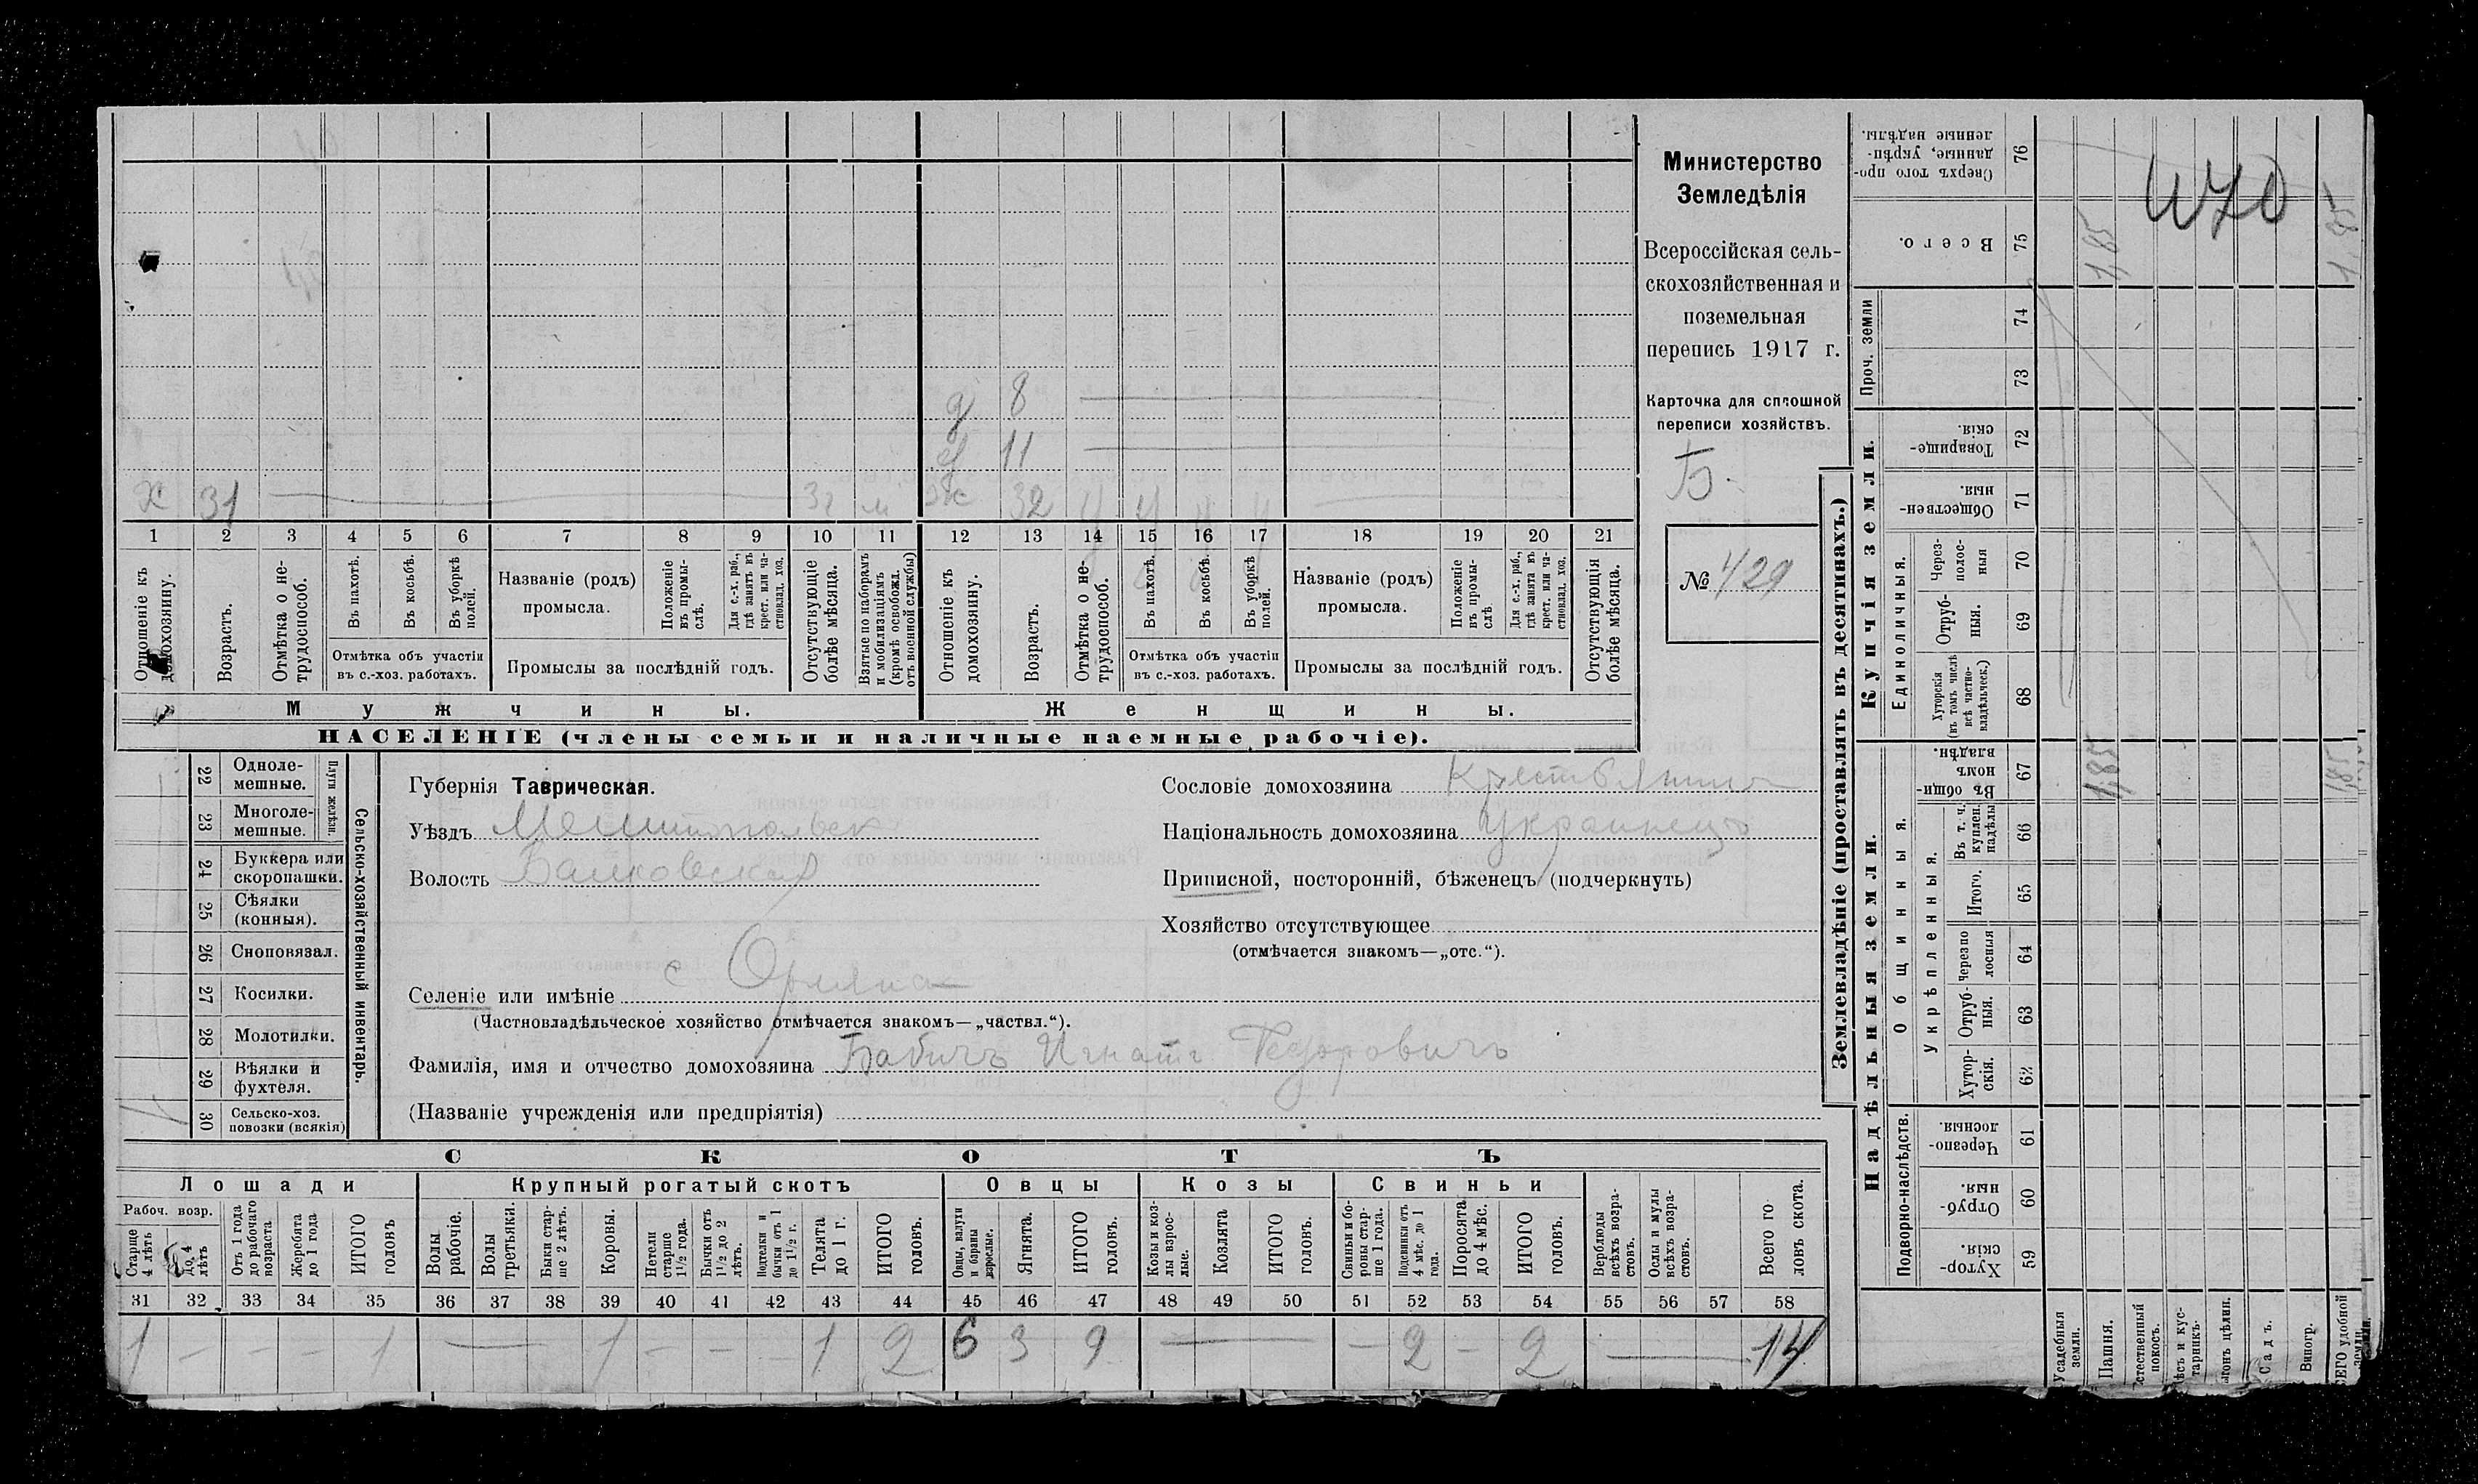 Министерство
Земледѣлія
Всероссійская сель-
скохозяйственная и
поземельная
перепись 1917 г.
Карточка для сплошной
переписи хозяйствъ.
Б.
№ 429
д 8
д 11
Х 31 32 м ж 32 У У У У
1 2 3 4 5 6 7 8 9 10 11 12 13 14 15 16 17 18 19 20 21
Отношеніе къ домохозяину.
Возрастъ.
Отмѣтка о не-трудоспособ.
Въ пахотѣ.
Въ косьбѣ.
Въ уборкѣ полей.
Отмѣтка объ участіи
въ с.-хоз. работахъ.
Названіе (родъ)
промысла.
Положеніе въ промы-слѣ.
Для с.-х. раб., гдѣ занятъ въ крест. или ча-стновлад. хоз.
Промыслы за послѣдній годъ.
Отсутствующіе болѣе мѣсяца.
Взятые по наборамъ и мобилизаціямъ (кромѣ освобожд. отъ военной службы)
Отношеніе къ домохозяину.
Возрастъ.
Отмѣтка о не-трудоспособ.
Въ пахотѣ.
Въ косьбѣ.
Въ уборкѣ полей.
Отмѣтка объ участіи
въ с.-хоз. работахъ.
Названіе (родъ)
промысла.
Положеніе въ промы-слѣ.
Для с.-х. раб., гдѣ занята въ крест. или ча-стновлад. хоз.
Промыслы за послѣдній годъ.
Отсутствующія болѣе мѣсяца.
Мужчины. Женщины.
НАСЕЛЕНІЕ (члены семьи и наличные наемные рабочіе).
22 Одноле-мешные.
23 Многоле-мешные.
Плуги желѣзн.
24 Буккера или скоропашки.
25 Сѣялки (конныя).
26 Сноповязал.
27 Косилки.
28 Молотилки.
29 Вѣялки и фухтеля.
30 Сельско-хоз. повозки (всякія)
Сельско-хозяйственный инвентарь.
Губернія Таврическая.
Уѣздъ Мелитопольск
Волость Балковская
Селеніе или имѣніе с Орлянка
(Частновладѣльческое хозяйство отмѣчается знакомъ—„частвл.“).
Фамилія, имя и отчество домохозяина Бабичъ Игнатъ Федоровичъ
(Названіе учрежденія или предпріятія)
Сословіе домохозяина Крестьянинъ
Національность домохозяина Украинецъ
Приписной, посторонній, бѣженецъ (подчеркнуть)
Хозяйство отсутствующее
(отмѣчается знакомъ—„отс.“).
СКОТЪ
Лошади Крупный рогатый скотъ Овцы Козы Свиньи
Рабоч. возр.
Старше 4 лѣтъ
До 4 лѣтъ
Отъ 1 года до рабочаго возраста
Жеребята до 1 года
ИТОГО головъ
Волы рабочіе.
Волы третьяки.
Быки стар-ше 2 лѣтъ.
Коровы.
Нетели старше 1½ года.
Бычки отъ 1½ до 2 лѣтъ.
Подтелки и бычки отъ 1 до 1½ г.
Телята до 1 г.
ИТОГО головъ.
Овцы, валухи и бараны взрослые.
Ягнята.
ИТОГО головъ.
Козы и коз-лы взрос-лые.
Козлята
ИТОГО головъ.
Свиньи и бо-ровы стар-ше 1 года.
Подсвинки отъ 4 мѣс. до 1 года.
Поросята до 4 мѣс.
ИТОГО головъ.
Верблюды всѣхъ возра-стовъ.
Ослы и мулы всѣхъ возра-стовъ.
Всего го-ловъ скота.
31 32 33 34 35 36 37 38 39 40 41 42 43 44 45 46 47 48 49 50 51 52 53 54 55 56 57 58
1 — — — 1 — 1 — — — 1 2 6 3 9 — — 2 — 2 — 14
Землевладѣніе (проставлять въ десятинахъ.)
Надѣльныя земли. Купчія земли. Проч. земли
Подворно-наслѣдств.
Общинныя.
Укрѣпленныя.
Единоличныя.
Хутор-скія. 59
Отруб-ныя. 60
Черезпо-лосныя. 61
Хутор-скія. 62
Отруб-ныя. 63
Черезпо лосныя 64
Итого. 65
Въ т. ч. куплен. надѣлы 66
Въ общин-номъ владѣн. 67
Хуторскія (въ томъ числѣ всѣ частно-владѣльческ.) 68
Отруб-ныя. 69
Через-полос-ныя 70
Обществен-ныя. 71
Товарище-скія. 72
73
74
Всего. 75
Сверхъ того про-данные, укрѣп-ленные надѣлы. 76
Усадебныя земли.
Пашня.
1,85 1,85
Виногр.
Садъ.
1,85 1,85